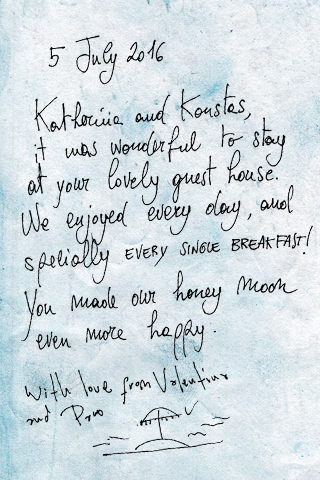 5 July 2016
Katherina and Konstas,
it was wonderful to stay
at your lovely guest house.
We enjoyed every day, and
specially EVERY SINGLE BREAKFAST!
You made our honey moon
even more happy.
With love from Valentina
and